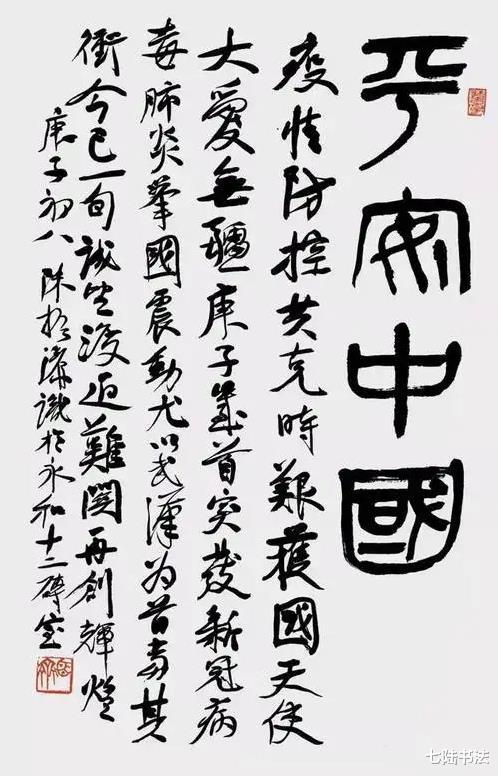 平安中國
疫情防控共克時艱護國天使
大愛無疆庚子歲首突發新冠病
毒肺炎舉國震動尤以武漢為首當其
衝今已一旬誠望渡過難關再創輝煌
庚子初八陳振濂識於永和十二磚室
七陆书法